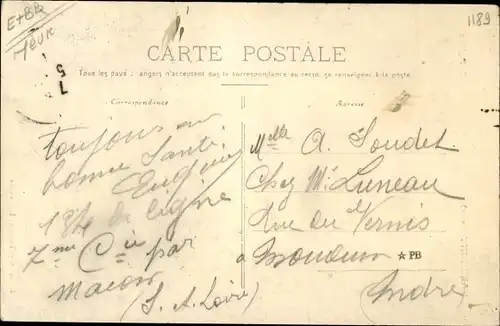 E+BB
1189
CARTE POSTALE
Tous les pays étrangers n'acceptent pas la correspondance au recto, se renseigner à la poste
Correspondance
Adresse
toujours en
bonne santé
Eugène
134 de ligne
7me Cie par
Macon
(S. A. Loire)
Melle A. Soudet
Chez Mr Luneau
Rue du Vernis
a Issoudun
★PB
Indre